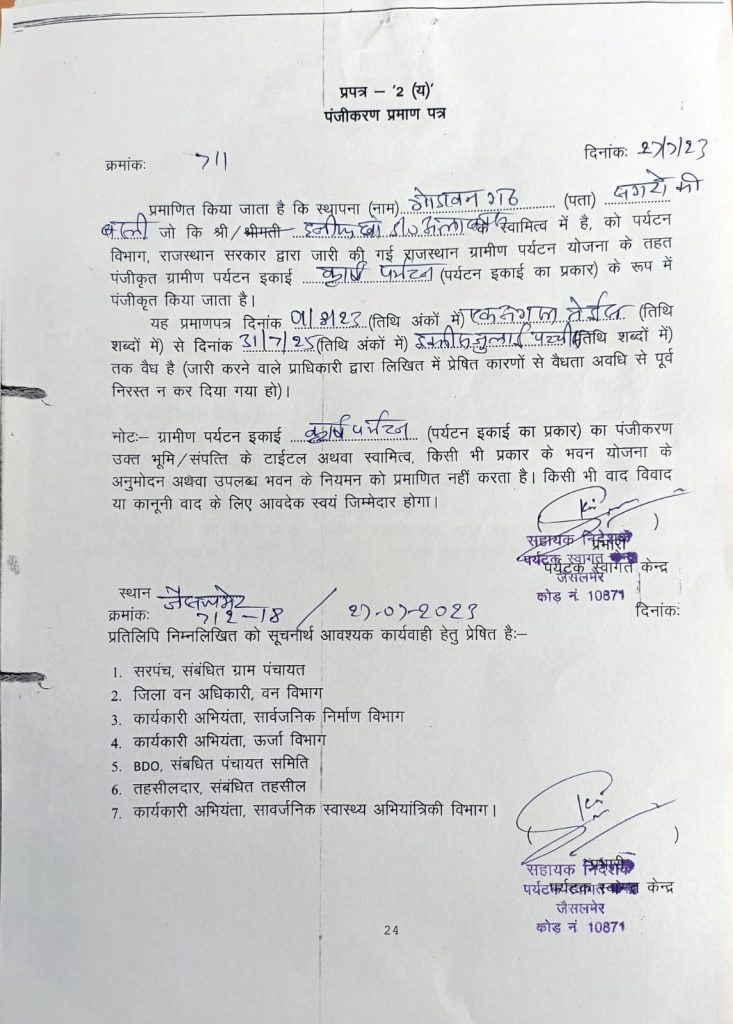 प्रपत्र – '2 (य)'
पंजीकरण प्रमाण पत्र
क्रमांक: 711
दिनांक: 27/7/23
प्रमाणित किया जाता है कि स्थापना (नाम) गोडावन गढ (पता) सगरो की
बस्ती जो कि श्री/श्रीमती के स्वामित्व में है, को पर्यटन
विभाग, राजस्थान सरकार द्वारा जारी की गई राजस्थान ग्रामीण पर्यटन योजना के तहत
पंजीकृत ग्रामीण पर्यटन इकाई कृषि पर्यटन (पर्यटन इकाई का प्रकार) के रूप में
पंजीकृत किया जाता है।
यह प्रमाणपत्र दिनांक 01/8/23 (तिथि अंकों में) (तिथि
शब्दों में) से दिनांक 31/7/25 (तिथि अंकों में) इक्तीस जुलाई पच्चीस (तिथि शब्दों में)
तक वैध है (जारी करने वाले प्राधिकारी द्वारा लिखित में प्रेषित कारणों से वैधता अवधि से पूर्व
निरस्त न कर दिया गया हो)।
नोटः– ग्रामीण पर्यटन इकाई कृषि पर्यटन (पर्यटन इकाई का प्रकार) का पंजीकरण
उक्त भूमि/संपत्ति के टाईटल अथवा स्वामित्व, किसी भी प्रकार के भवन योजना के
अनुमोदन अथवा उपलब्ध भवन के नियमन को प्रमाणित नहीं करता है। किसी भी वाद विवाद
या कानूनी वाद के लिए आवदेक स्वयं जिम्मेदार होगा।
( )
प्रभारी
पर्यटक स्वागत केन्द्र
सहायक निदेशक
पर्यटक स्वागत केन्द्र
जैसलमेर
कोड़ नं. 10871
स्थान जैसलमेर
क्रमांक: 712-18 / 27-07-2023
दिनांक:
प्रतिलिपि निम्नलिखित को सूचनार्थ आवश्यक कार्यवाही हेतु प्रेषित है:–
1. सरपंच, संबंधित ग्राम पंचायत
2. जिला वन अधिकारी, वन विभाग
3. कार्यकारी अभियंता, सार्वजनिक निर्माण विभाग
4. कार्यकारी अभियंता, ऊर्जा विभाग
5. BDO, संबधित पंचायत समिति
6. तहसीलदार, संबंधित तहसील
7. कार्यकारी अभियंता, सावर्जनिक स्वास्थ्य अभियांत्रिकी विभाग।
( )
प्रभारी
पर्यटक स्वागत केन्द्र
सहायक निदेशक
पर्यटक स्वागत केन्द्र
जैसलमेर
कोड़ नं 10871
24